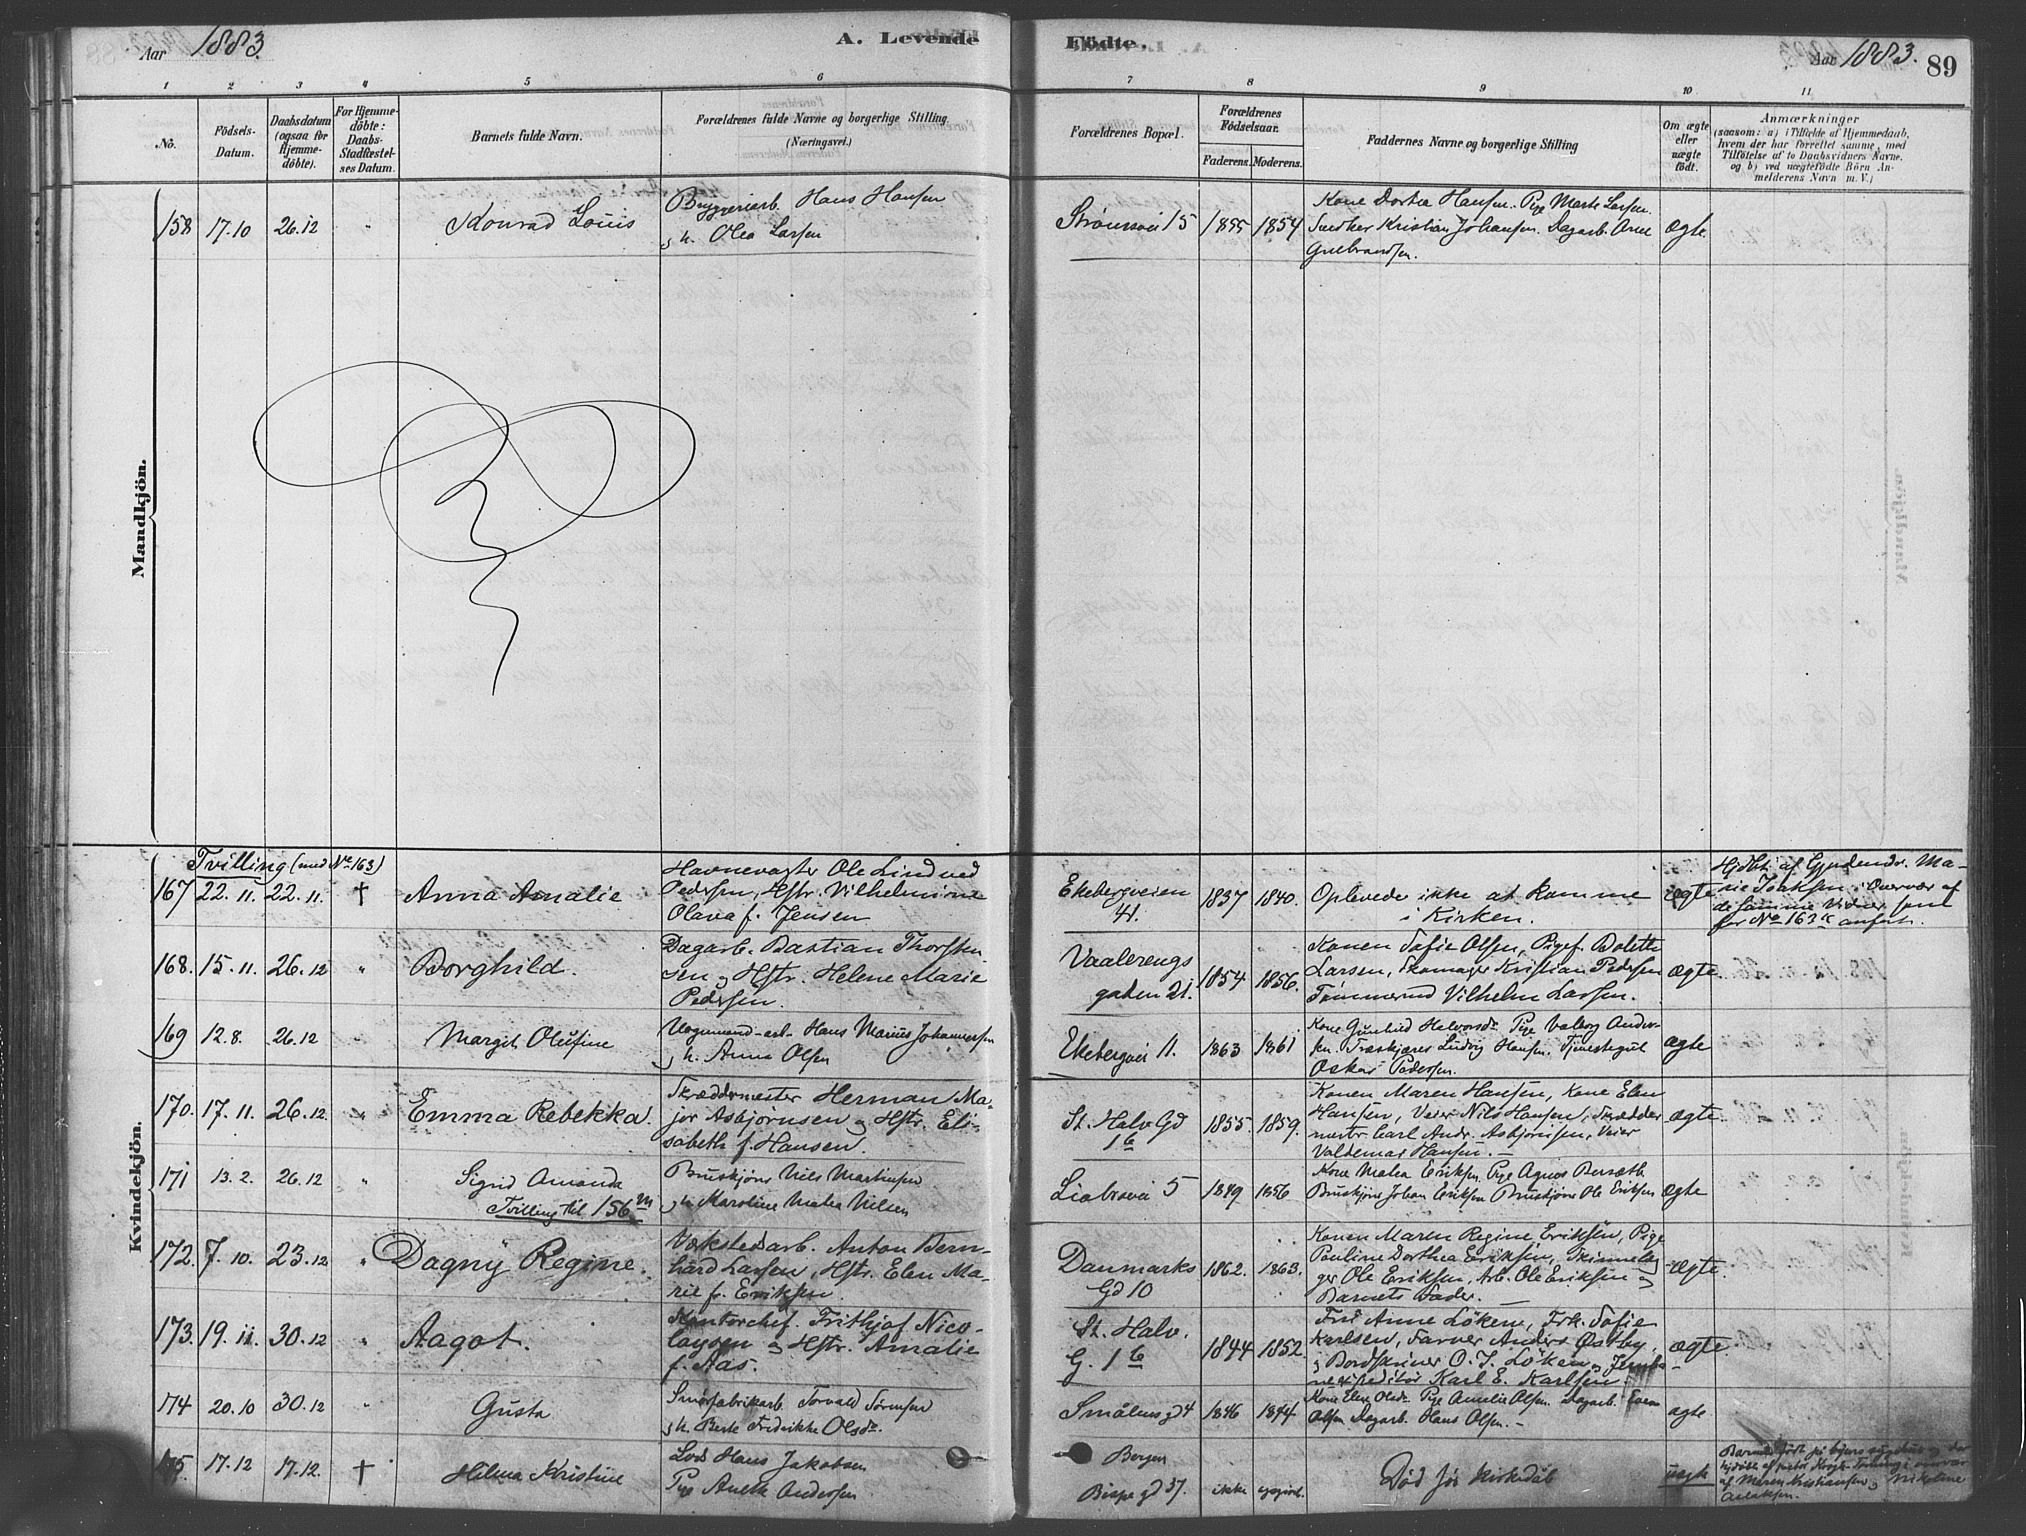 Aar 1883.
A. Levende
Födte.
Aar 1883.
89
1 2 3 4 5 6 7 8 9 10 11
No.
Födsels-Datum.
Daabsdatum (ogsaa for Hjemme-döbte).
For Hjemme-döbte: Daabs-Stadfæstel-ses Datum.
Barnets fulde Navn.
Forældrenes fulde Navne og borgerlige Stilling
(Næringsvei.)
Forældrenes Bopæl.
Forældrenes Födselsaar.
Faderens. Moderens.
Faddernes Navne og borgerlige Stilling
Om ægte eller uægte födt.
Anmærkninger
(saasom: a) i Tilfælde af Hjemmedaab,
hvem der har forrettet samme, med
Tilföielse af to Daabsvidners Navne,
og b) ved uægtefödte Börn An-
melderens Navn m. V.)
Mandkjön.
158 17.10 26.12 " Konrad Louis
Bryggeriarb. Hans Hansen
og h. Olea Larsen
Strömsvei 15 1855 1854
Kone Dortea Hansen. Pige Marte Larsen.
Snedker Kristian Johansen. Dagarb. Arne
Gulbrandsen.
ægte
Kvindekjön.
Tvilling (med No 163)
167 22.11. 22.11. † Anna Amalie
Havnevagter Ole Lindved
Pedersen, Hstr. Vilhelmine
Olava f. Jensen
Ekebergveien
41.
1837 1840.
Oplevede ikke at komme
i Kirken.
ægte
Hjdbt. af Gjordemdr. Ma-
rie Isaksen i Overvær af
de samme Vidner som
for No 163 er anført.
168. 15.11. 26.12 " Borghild.
Dagarb. Bastian Thorsten-
sen og Hstr. Helene Marie
Pedersen.
Vaalerengs
gaden 21.
1854 1856.
Konen Sofie Olsen, Pigef. Bolette
Larsen, Skomager Kristian Pedersen
Tømmermd Vilhelm Larsen.
ægte.
169 12.8. 26.12 " Margit Olufine
Vognmand-arb. Hans Marius Johannessen
og h. Anna Olsen
Ekebergvei 11. 1863 1861
Kone Gunhild Halvorsdr. Pige Valborg Ander-
sen. Træskjærer Ludvig Hansen. Tjenestegut
Oskar Pedersen.
ægte
170. 17.11. 26.12 " Emma Rebekka.
Skræddermester Herman Ma-
jor Asbjørnsen og Hstr. Eli-
sabeth f. Hansen.
St. Halv. Gd
1 b
1855. 1859.
Konen Maren Hansen, Kone Elen
Hansen, Veier Nils Hansen, Skrædder
mester Carl Andr. Asbjørnsen, Veier
Valdemar Hansen. —
ægte.
171 13.2. 26.12 " Sigrid Amanda
Tvilling til 156 m
Bruskjører Nils Martinsen
og h. Karoline Matea Nilsen
Liabrovei 5 1849 1856
Kone Matea Eriksen. Pige Agnes Berseth
Bruskjører Johan Eriksen Bruskjører Ole Eriksen
ægte
172. 7.10. 23.12 " Dagny Regine.
Værkstedsarb. Anton Bern-
hard Larsen, Hstr. Elen Ma-
rie f. Eriksen.
Danmarks
Gd 10
1862. 1863.
Konen Maren Regine Eriksen, Pige
Pauline Dorthea Eriksen, Skinnelæg-
ger Ole Eriksen, Arb. Ole Eriksen og
Barnets Fader. —
ægte.
173. 19.11. 30.12 " Aagot.
Kontorchef. Frithjof Nico-
laysen og Hstr. Amalie
f. Aas.
St. Halv.
G. 1 b
1844 1852.
Fru Anne Løken, Frk. Sofie
Karlsen, Farver Anders Østby,
og Bordskriver O. J. Løken og Jernba-
neexpeditør Karl E. Karlsen.
ægte.
174 20.10 30.12 " Gusta
Smørfabrikarb. Torvald Sørensen
og h. Berte Fredrikke Olsdr.
Smålens gd 4 1846 1844
Kone Elen Olsdr. Pige Amelie Olsen Dagarb. Even
Olsen Dagarb. Hans Olsen. —
ægte
175. 17.12 17.12. † Hilma Kristine
Lods Hans Jakobsen
Pige Aneth Andersen
Bergen
Bispegd 37. ikke opgivet.
Død før Kirkedåb
uægte
Barnet født på byens sygehus og der
hjdøbt af pastor i overvær
af Maren Kristiansen og Nikoline